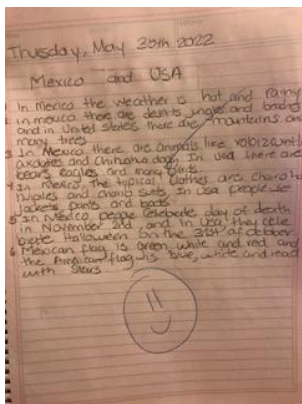 Thursday, May 30th 2022
Mexico and USA
1 In mexico the weather is hot and rainy
2 in mexico there are deserts jungles and beaches
and in United states there are mountains and
many trees
3 In Mexico there are animals like
and Chihuahua dogs In usa there are
bears eagles and many
4 In Mexico, the typical clothes are
and charro suits In Usa people use
jackets pants and boots
5 In Mexico people celebrate day of death
in November 2nd and in Usa they cele
brate Halloween on the 31st of october
Mexican flag is green, white and red, and
the American flag is blue, white and read
with stars